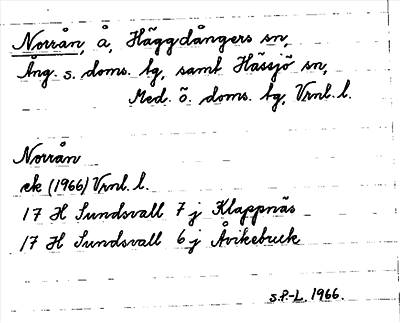 Norrån, å, Häggdångers sn,
Ång. s. doms. tg, samt Hässjö sn,
Med. ö. doms. tg, Vrnl. l.
Norrån
ek (1966) Vrnl. l.
17 H Sundsvall 7 j Klappnäs
17 H Sundsvall 6 j Åvikebruk
S.P.-L. 1966.